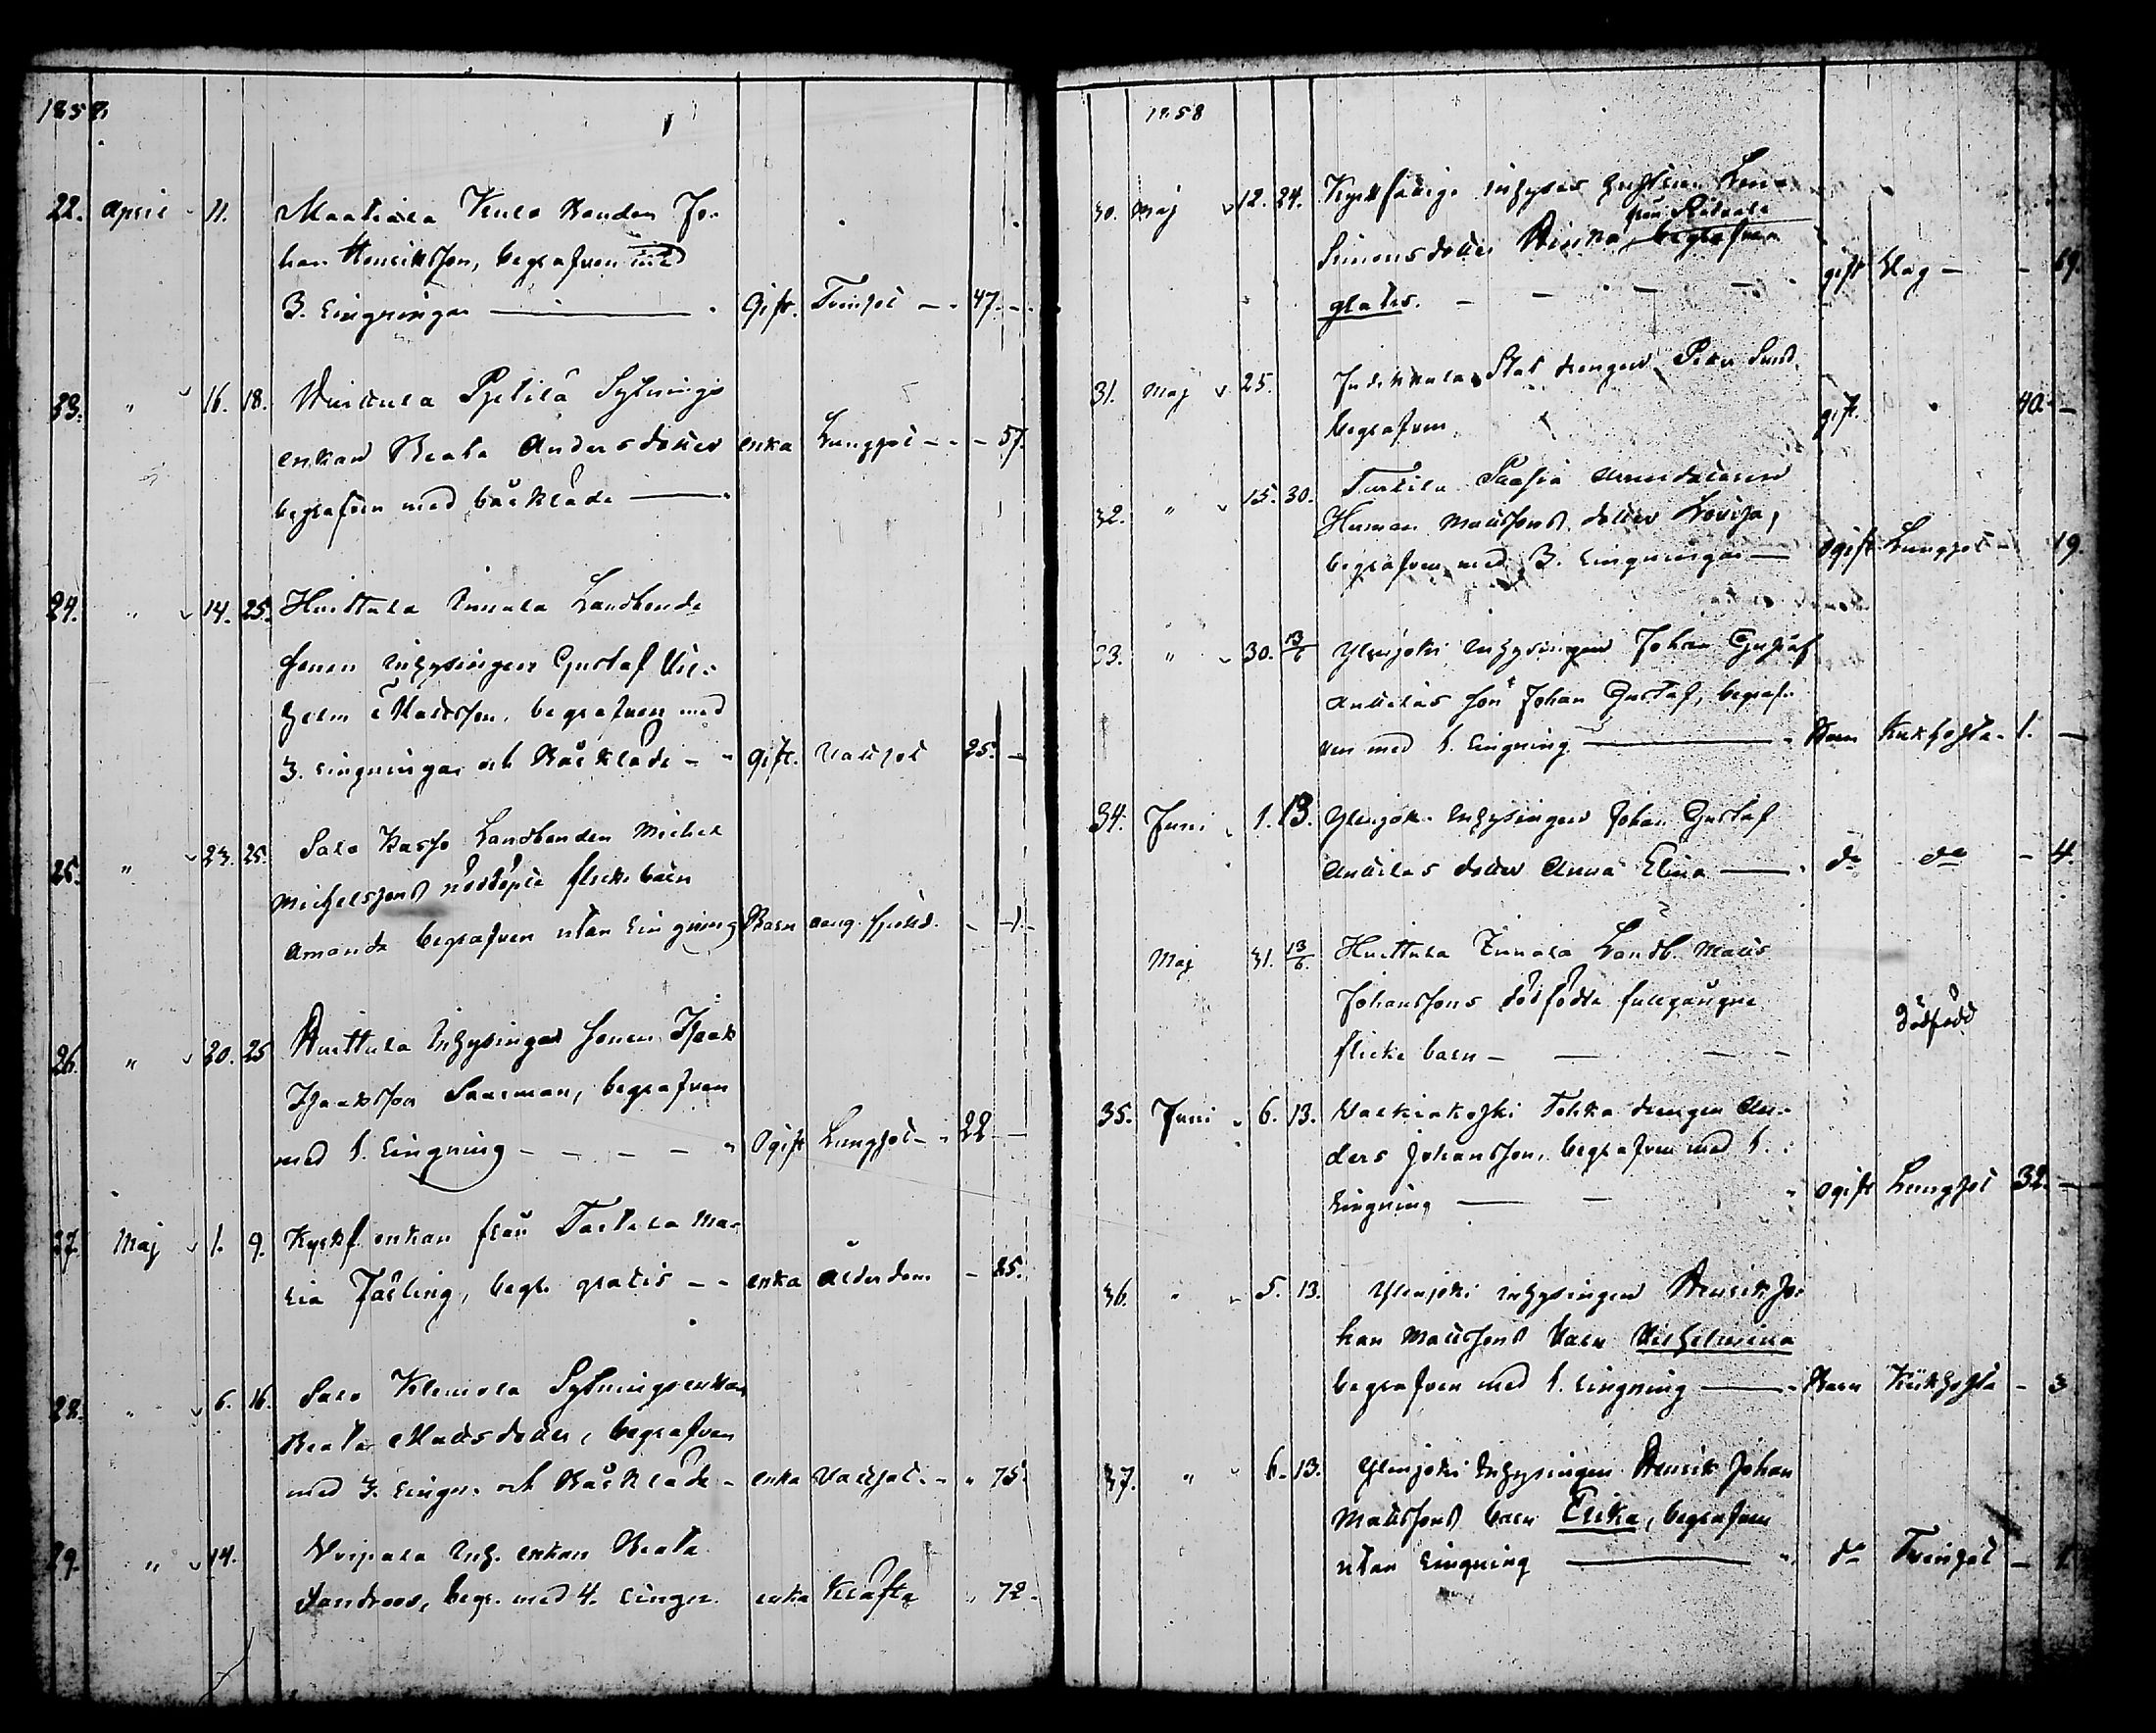 1858.
22. April 11. Maatiala Kulo Bonden Jo-
han Henriksson, begrafven med
3. Ringningar Gift. Tvinsot 47.
23. " 16. 18. Huittula Pytilä Sytnings
enkan Beata Andersdotter enka Lungsot 57.
begrafven med bårkläde
24. " 14. 25. Huittula Annala Landbonde
sonen Inhysingen Gustaf Vil-
helm Mattsson, begrafven med
3. ringningar och Bårkläde Gift. Vattsot 25.
25. " 23. 25. Salo Kasso Landbonden Michel
Michelssons nöddöpta flickebarn
Amanda begrafven utan Ringning Barn 1.
26. " 20. 25 Huittula Inhysinges sonen Isaak
Isaaksson Saarman, begrafven
med 1. Ringning Ogift Lungsot 22
27. Maj 1. 9. Kyrkf enkan från Tarttila Ma-
ria Järling, begr. gratis enka ålderdom 85.
28. " 6. 16. Salo Klemola Sytningsenkan
Beata Mattsdotter, begrafven
med 3. ringn. och Bårkläde enka Vattsot 75.
29. " 14. Voipala Inh. enkan Beata
Sandroos, begr. med 4. ringn. enka Kräfta 72.
1858
30. Maj 12. 24. Kyrkfattige inhyses hustrun Lena
från Ritvala
Simonsdotter Henka, begrafven
gratis. gift Slag 69.
31. Maj 25. Judikkala Stat drengen Peter Sund,
begrafven gift. " 40.
32. " 15. 30. Tursila Paasia
Herman Mattssons dotter Lovisa,
begrafven med 3. ringningar Ogift Lungsot 19.
33. " 30. 13/6 Ylenjoki Inhysingen Johan Gustaf
Anttilas son Johan Gustaf, begraf-
ven med 1. Ringning. Barn Kikhosta 1.
34. Juni 1. 13. Ylenjoki Inhysingen Johan Gustaf
Anttilas dotter Anna Elina do do 4.
Maj 31. 13/6. Huittula Annala Landb. Matts
Johanssons dödfödda fullgångne
flicke barn Dödfödd
35. Juni 6. 13. Valkiakoski Tokka drengen An-
ders Johansson, begrafven med 1.
Ringning ogift Lungsot 32.
36. " 5. 13. Ylenjoki inhysingen Henrik Jo-
han Mattssons barn Vilhelmina
begrafven med 1. ringning Barn Kikhosta 3
37. " 6. 13. Ylenjoki Inhysingen Henrik Johan
Mattssons barn Erika, begrafven
utan ringning do Tvinsot 1